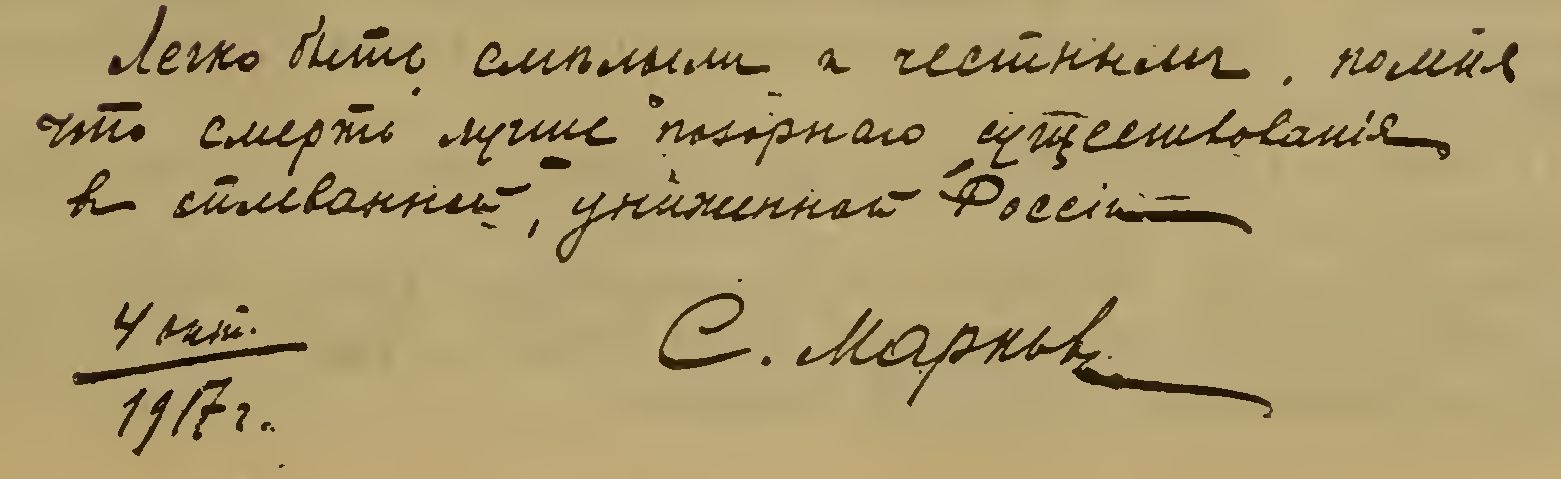 Легко быть смѣлым и честным, помня
что смерть лучше позорнаго существованія
в оплеванной, униженной Россіи
4 окт.
1917 г.
С. Марков